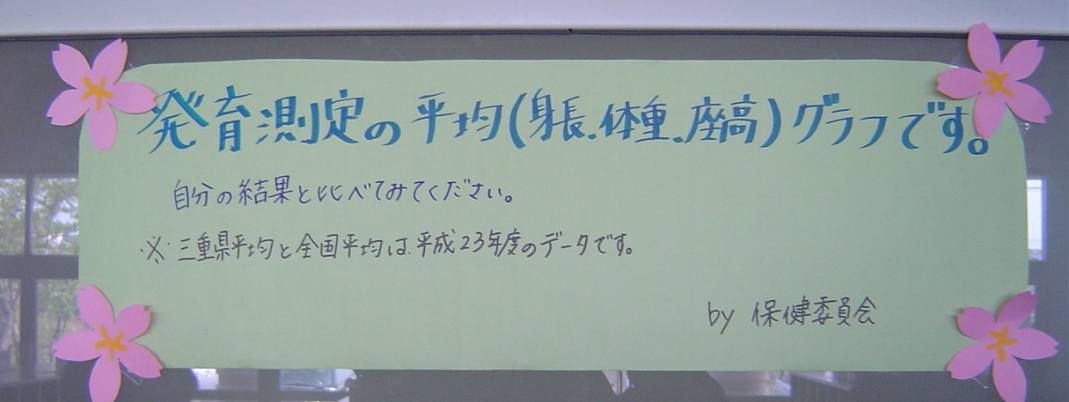 発育測定の平均(身長.体重.座高)グラフです。
自分の結果と比べてみてください。
※三重県平均と全国平均は、平成23年度のデータです。
by 保健委員会